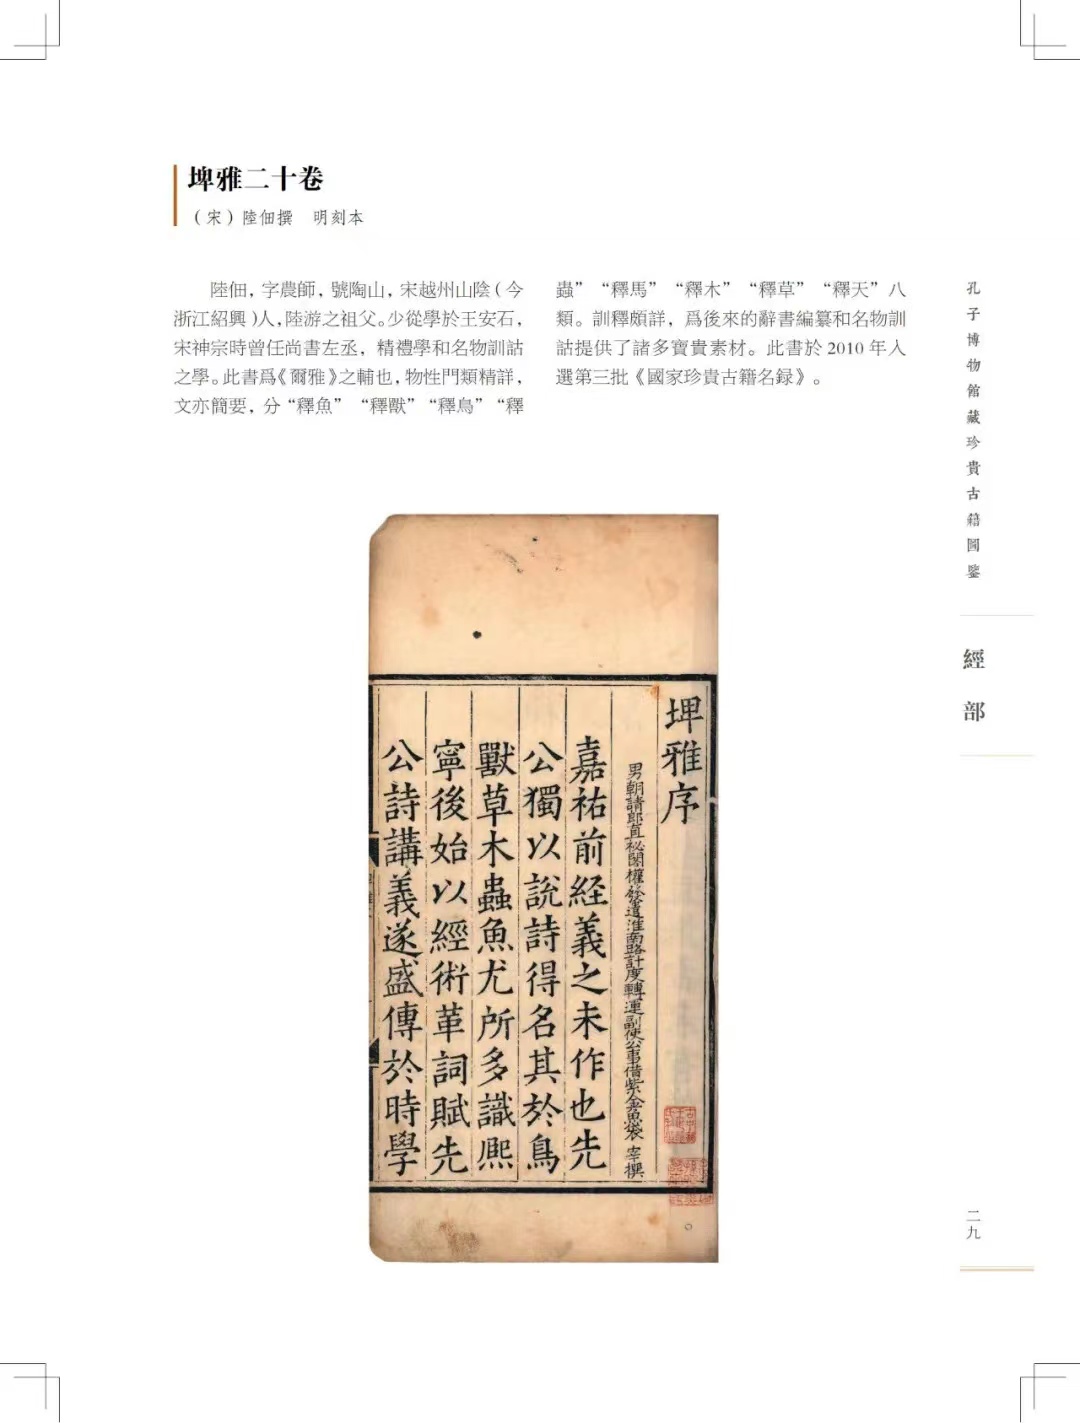 埤雅二十卷
（宋）陸佃撰　明刻本
陸佃，字農師，號陶山，宋越州山陰（今
浙江紹興）人，陸游之祖父。少從學於王安石，
宋神宗時曾任尚書左丞，精禮學和名物訓詁
之學。此書爲《爾雅》之輔也，物性門類精詳，
文亦簡要，分“釋魚”“釋獸”“釋鳥”“釋
蟲”“釋馬”“釋木”“釋草”“釋天”八
類。訓釋頗詳，爲後來的辭書編纂和名物訓
詁提供了諸多寶貴素材。此書於2010年入
選第三批《國家珍貴古籍名録》。
孔子博物館藏珍貴古籍圖鑒
經部
二九
埤雅序
男朝請郎直祕閣權發遣淮南路計度轉運副使公事借紫金魚袋宰撰
嘉祐前経義之未作也先
公獨以說詩得名其於鳥
獸草木蟲魚尤所多識熈
寧後始以經術革詞賦先
公詩講義遂盛傳於時學